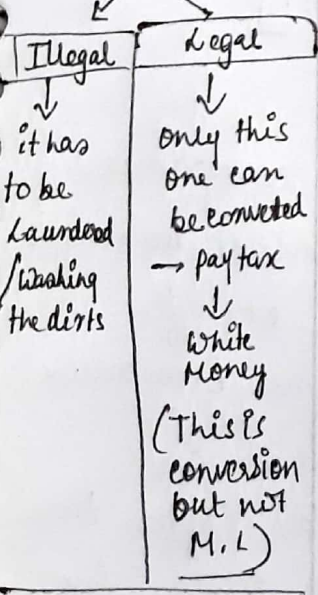 Illegal
it has
to be
Laundered
/Washing
the dirts
Legal
only this
one can
be conveted
→ pay tax
White
Money
(This is
conversion
but not
M.L)